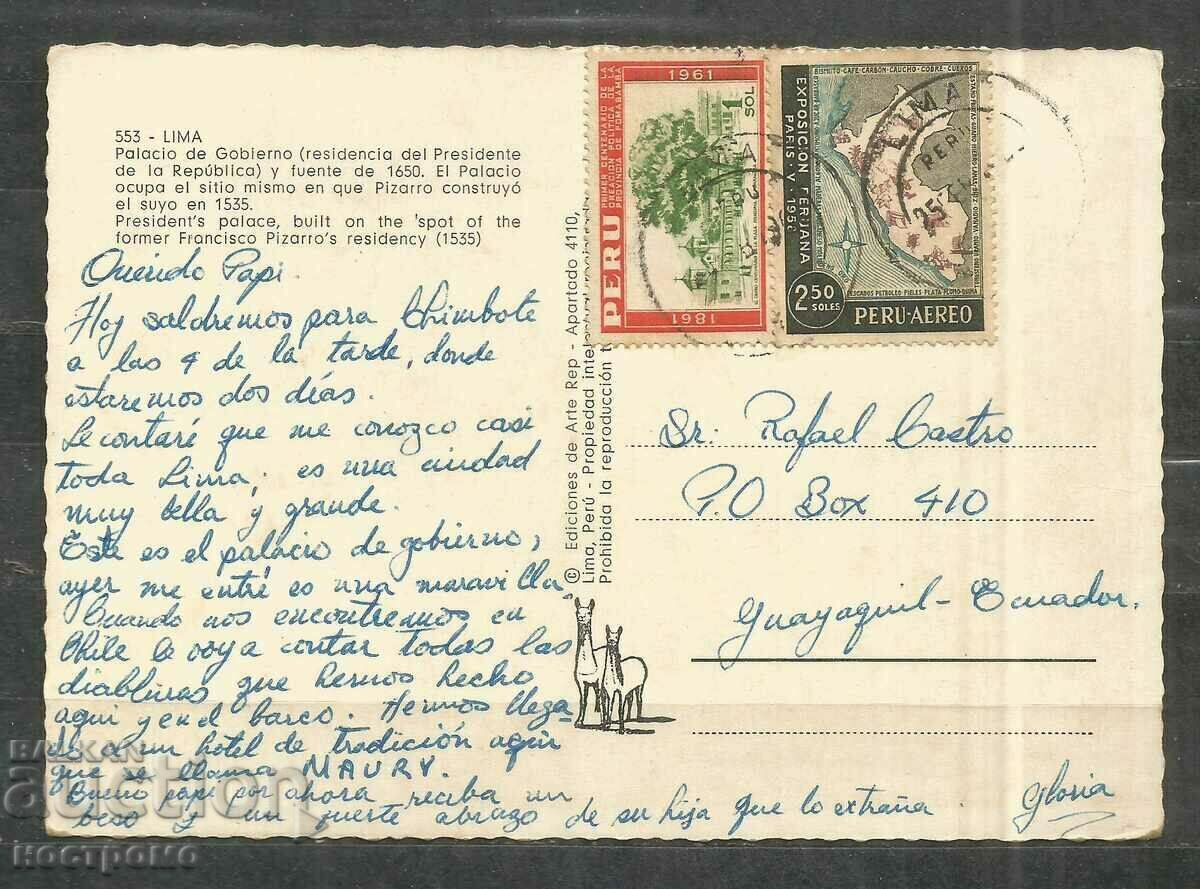 553 - LIMA
Palacio de Gobierno (residencia del Presidente
de la República) y fuente de 1650. El Palacio
ocupa el sitio mismo en que Pizarro construyó
el suyo en 1535.
President's palace, built on the 'spot of the
former Francisco Pizarro's residency (1535)
Querido Papi.
Hoy saldremos para Chimbote
a las 4 de la tarde, donde
estaremos dos días.
Le contaré que me conozco casi
toda Lima, es una ciudad
muy bella y grande.
Este es el palacio de gobierno,
ayer me entré es una maravilla
Cuando nos encontremos en
Chile le voya contar todas las
diabluras que hemos hecho
aqui y en el barco. Hemos llega-
do a un hotel de tradición aqui
que se llama MAURY.
Bueno papi por ahora reciba un
beso y un fuerte abrazo de su hija que lo extraña.
Gloria
© Ediciones de Arte Rep - Apartado 4110,
Lima, Perú - Propiedad inte
Prohibida la reproducción t
1961
1 SOL
PRIMER CENTENARIO DE LA
CREACION POLITICA DE LA
PROVINCIA DE POMABAMBA
PERU
1861
BISMUTO-CAFE-CARBON-CAUCHO-COBRE-CUEROS
EXPOSICION PERUANA
PARIS-V-195
PESCADOS PETROLEO PIELES-PLATA-PLOMO-QUINA
2.50
SOLES
PERU-AEREO
LIMA
PERU
25
Sr. Rafael Castro
P.O Box 410
Guayaquil - Ecuador.
BALKAN
auction
ностромо